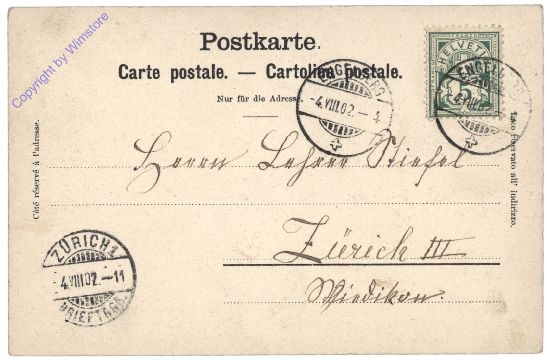 Copyright by Wimstore
Postkarte.
Carte postale. — Cartolina postale.
Nur für die Adresse.
HELVETIA
FRANCO
5
-4.VIII.02.-4
4.VIII.02
Côté réservé à l'adresse.
Lato riservato all' indirizzo.
Herrn Lehrer Stiefel
Zürich III
Wiedikon.
ZÜRICH 1
4.VIII.02.-11
BRIEFTRÄG.